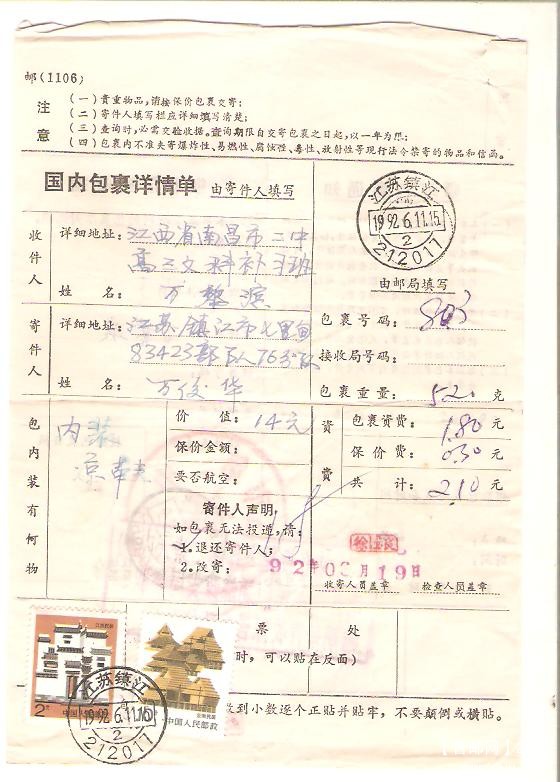 邮(1106)
注意
(一)贵重物品,请按保价包裹交寄;
(二)寄件人填写栏应详细填写清楚;
(三)查询时,必需交验收据。查询期限自交寄包裹之日起,以一年为限;
(四)包裹内不准夹寄爆炸性、易燃性、腐蚀性、毒性、放射性等现行法令禁寄的物品和信函。
国内包裹详情单 由寄件人填写
江苏镇江
1992.6.11.15
2
212011
由邮局填写
收件人
详细地址:江西省南昌市二中
高三文科补习班
姓名:万黎滨
寄件人
详细地址:江苏镇江市七里甸
83423部队76分队
姓名:万俊华
包裹号码:803
接收局号码:
包裹重量:520克
包内装有何物
内装
凉鞋
价值:14元
保价金额:
要否航空:
资费
包裹资费:1.80元
保价费:0.30元
共计:2.10元
寄件人声明,
如包裹无法投递,请:
1.退还寄件人;
2.改寄:
92年06月19日
收寄人员盖章
检查人员盖章
票处
时,可以贴在反面)
发到小数逐个正贴并贴牢,不要颠倒或横贴。
江西民居
2元
中国人民邮政
云南民居
中国人民邮政
江苏镇江
1992.6.11.16
2
212011